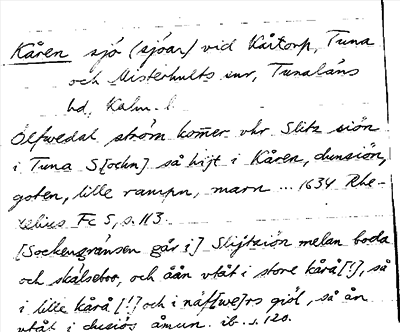 Kåren sjö (sjöar) vid Kåtorp, Tuna
och Misterhults snr, Tunaläns
hd, Kalm. l
Ölfwedal ström komer uhr Slitz siön
i Tuna S[ochn] så hijt i Kåren, dunsiön,
goten, lille rampn, marn ... 1634 Rhe-
zelius Fc 5, s. 113.
[Sockengränsen går i] Slijtziön melan boda
och skälsebo, och åån utåt i store kårå [!], så
i lille kårå [!] och i näf[we]rs giöl, så ån
utåt i dusiös åmun. ib. s. 120.